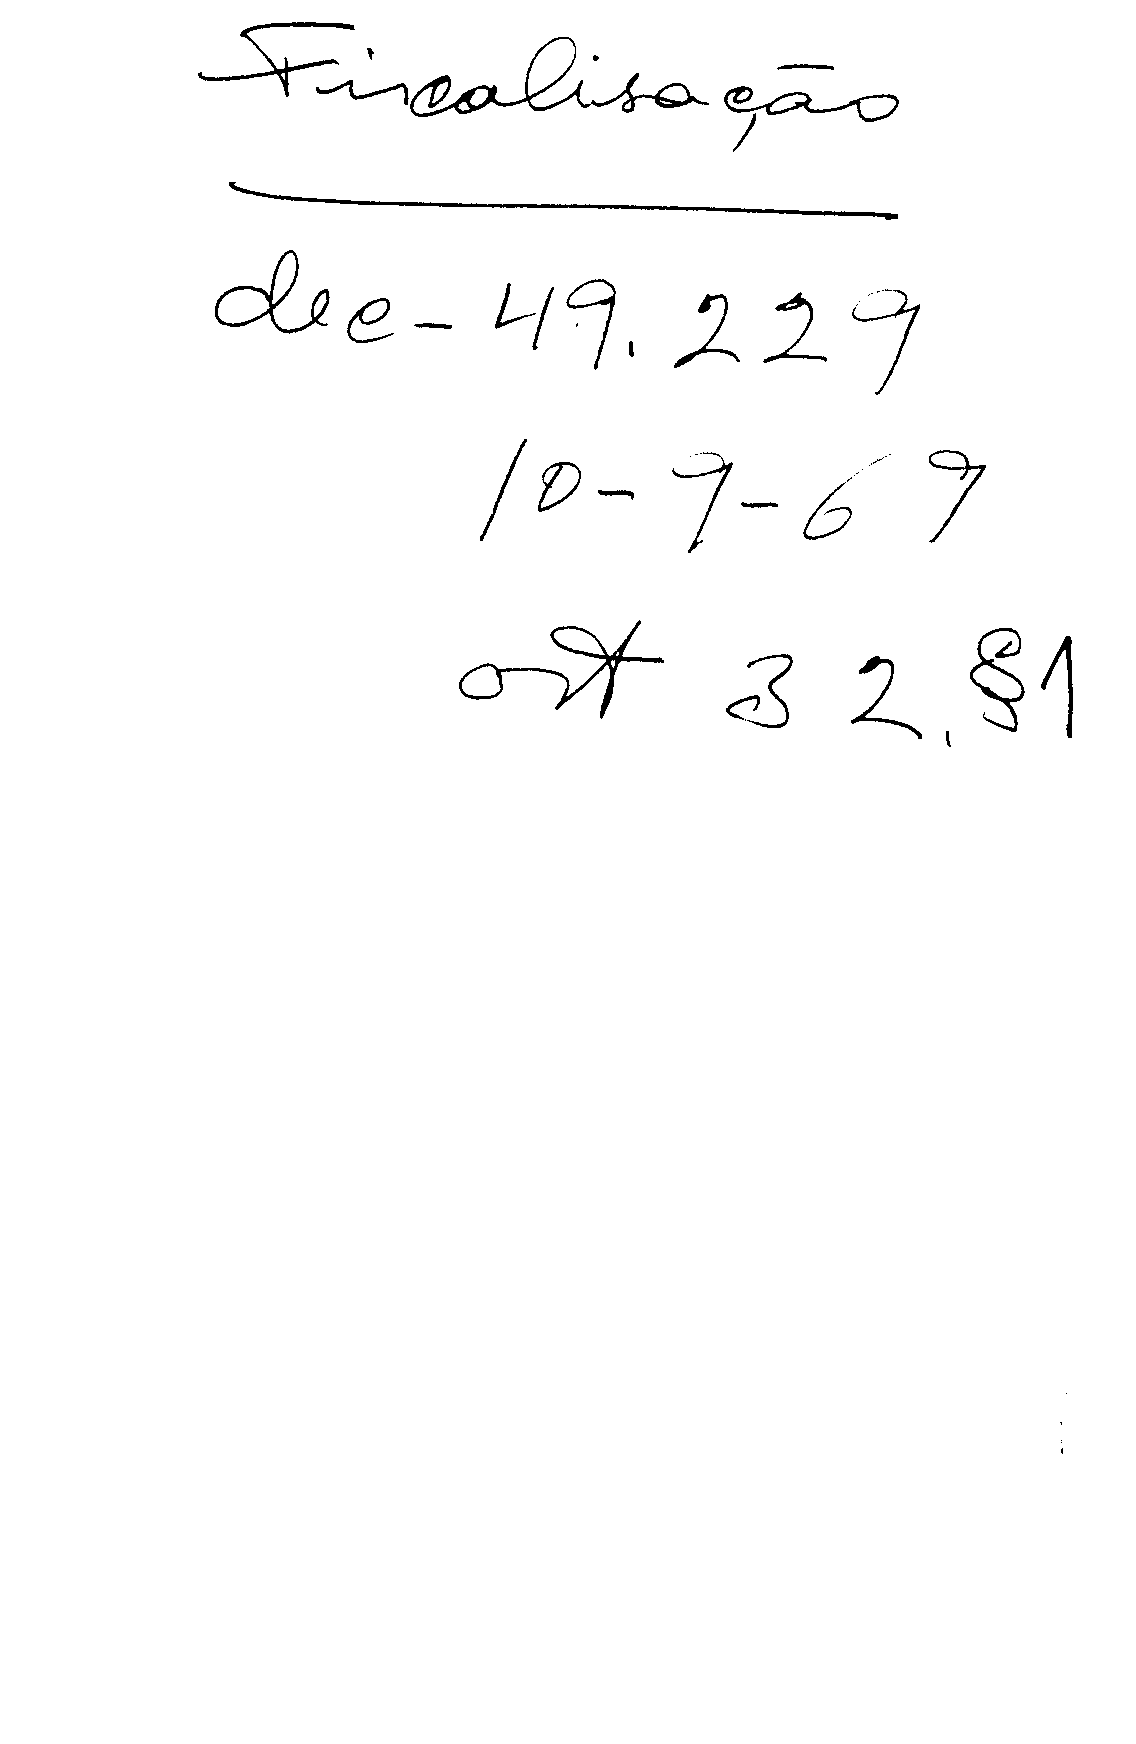 Fiscalisação
dec - 49.229
10-9-69
art 32. §1